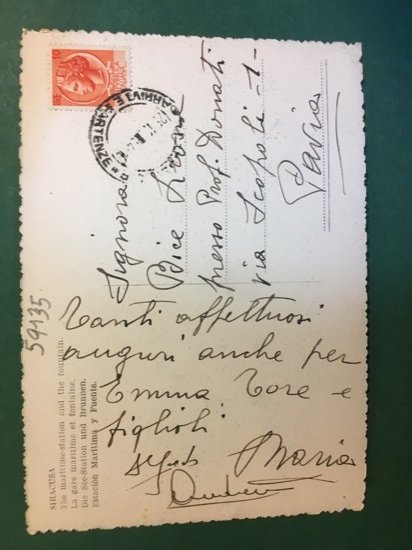 Signora
Bice
presso Prof. Donati
via Scopoli -1-
Pavia
Tanti affettuosi
auguri anche per
Emma Tore e
figlioli
Maria
ARRIVI E PARTENZE
59135
SIRACUSA
The maritime-station and the fountain.
La gare maritime et fontaine.
Die See-Station und Brunnen.
Estación Marítima y Fuente.